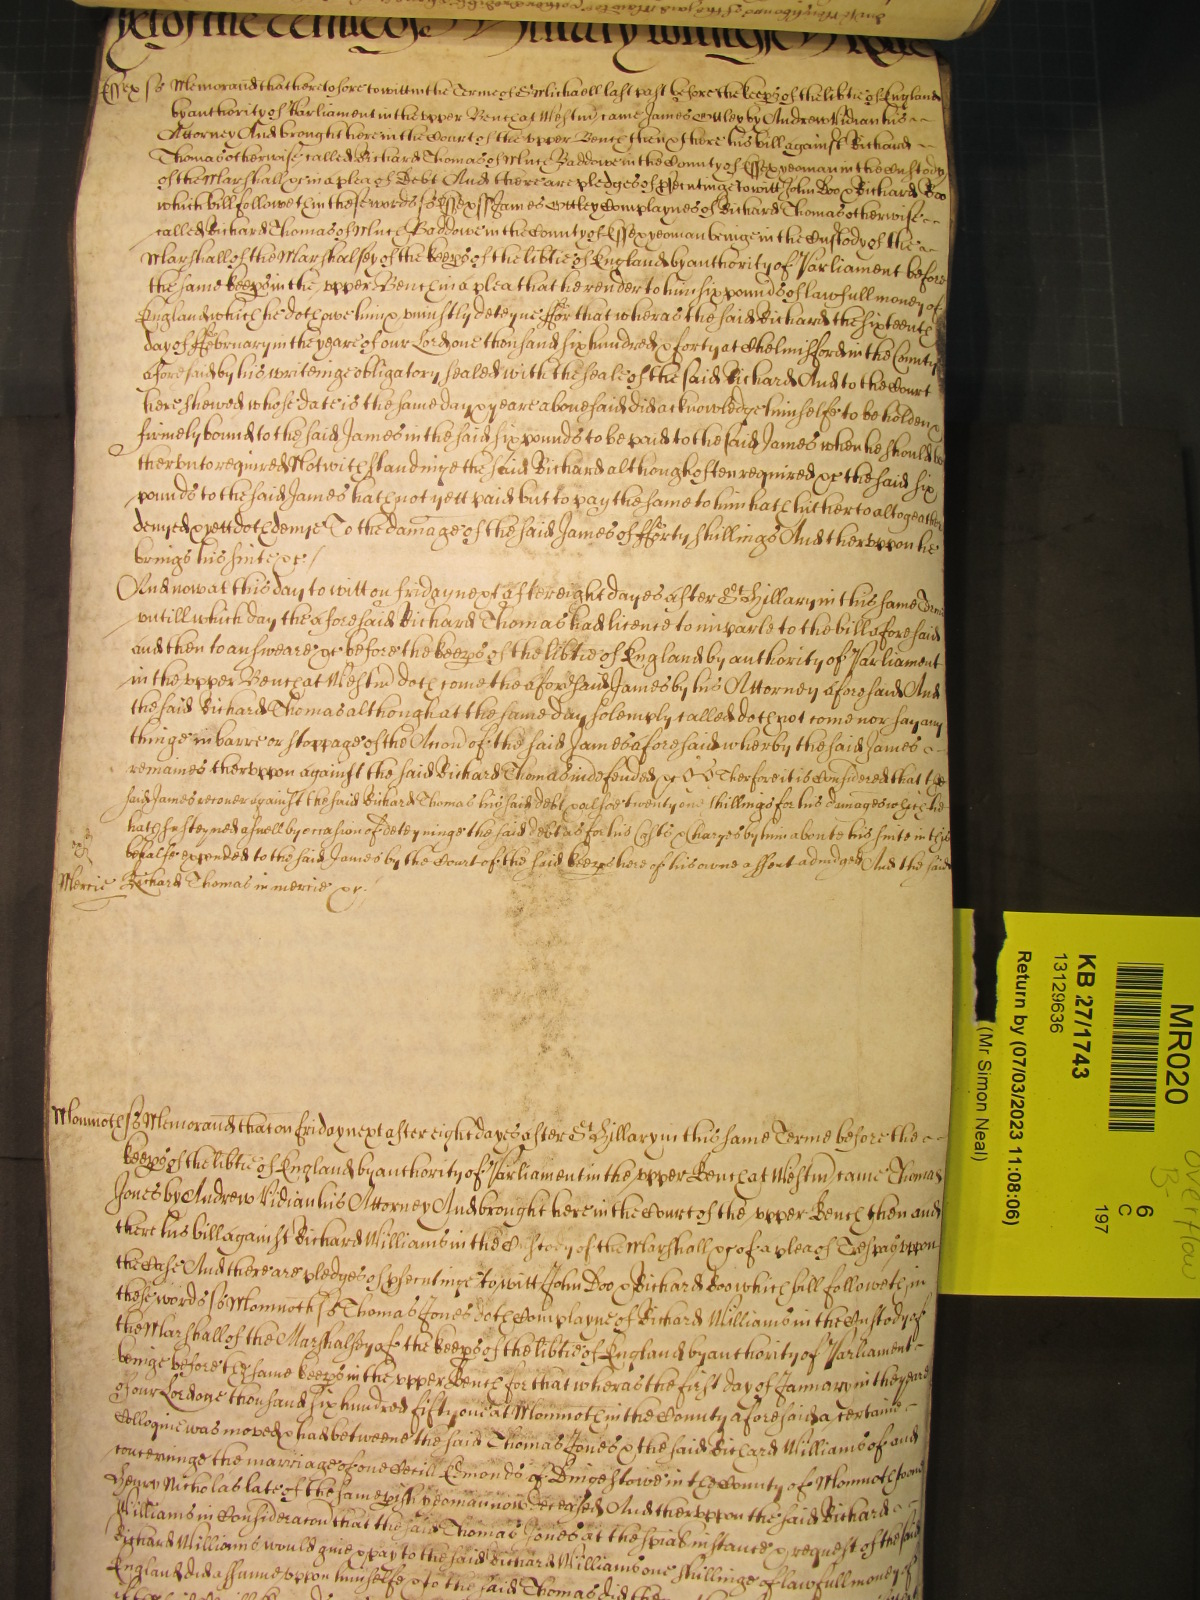 Essex ss Memorand that heretofore to witt in the Terme of St Michaell last past before the keeps of the libtie of England
by authority of Parliament in the upper Bench at Westm came James Ottley by Andrew Vidian his
Attorney And brought here in the Court of the upper Bench then & there his bill against Richard
Thomas otherwise called Richard Thomas of Much Baddowe in the County of Essex yeoman in the Custody
of the Marshall &c in a plea of Debt And there are pledges of psecutinge to witt John Doo & Richard Roo
which bill followeth in these words ss Essex ss James Ottley Complaynes of Richard Thomas otherwise
called Richard Thomas of Much Baddowe in the County of Essex yeoman beinge in the Custody of the
Marshall of the Marshalsey of the keeps of the libtie of England by authority of Parliament before
the same keeps in the upper Bench in a plea that he render to him six pounds of lawfull money of
England which he doth owe him & uniustly deteyne ffor that wheras the said Richard the sixteenth
day of ffebruary in the yeare of our Lord one thousand six hundred & forty at Chelmisford in the County
aforesaid by his writeinge obligatory sealed with the seale of the said Richard And to the Court
here shewed whose date is the same day & yeare abovesaid did acknowledge himselfe to be holden &
firmely bound to the said James in the said six pounds to be paid to the said James when he should be
therunto required Notwithstandinge the said Richard although often required &c the said six
pounds to the said James hath not yett paid but to pay the same to him hath hitherto altogeather
denyed & yett doth denye To the damage of the said James of fforty shillings And therupon he
brings his suite &c /
And now at this day to witt on friday next after eight dayes after St Hillary in this same Terme
untill which day the aforesaid Richard Thomas had licence to imparle to the bill aforesaid
and then to answeare &c before the keeps of the libtie of England by authority of Parliament
in the upper Bench at Westm doth come the aforesaid James by his Attorney aforesaid And
the said Richard Thomas although at the same day solemply called doth not come nor say any
thinge in barre or stoppage of the Accon of the said James aforesaid wherby the said James
remaines therupon against the said Richard Thomas undefended &c Therfore it is Considered that the
said James recover against the said Richard Thomas his said debt & alsoe twenty one shillings for his damages which he
hath susteyned aswell by occasion of deteyninge the said debt as for his Costs & Charges by him about his suite in this
behalfe expended to the said James by the Court of the said keeps here of his owne assent adiudged And the said
Mercie Richard Thomas in mercie &c
Monmoth ss Memorand that on friday next after eight dayes after St Hillary in this same Terme before the
keeps of the libtie of England by authority of Parliament in the upper Bench at Westm came Thomas
Jones by Andrew Vidian his Attorney And brought here in the Court of the upper Bench then and
there his bill against Richard Williams in the Custody of the Marshall &c of a plea of Trespas upon
the Case And there are pledges of psecutinge to witt John Doo & Richard Roo which bill followeth in
these words ss Monmoth ss Thomas Jones doth Complayne of Richard Williams in the Custody of
the Marshall of the Marshalsey of the keeps of the libtie of England by authority of Parliament
beinge before the same keeps in the upper Bench for that wheras the first day of January in the yeare
of our Lord one thousand six hundred fifty one at Monmoth in the County aforesaid a certaine
Colloquie was moved & had betweene the said Thomas Jones & the said Richard Williams of and
concerninge the marriage of one Cecill Edmonds of Dingestowe in the County of Monmoth
Henry Nicholas late of the same pish yeoman now deceased And therupon the said Richard
Williams in Consideracon that the said Thomas Jones at the spiall instance & request of the said
Richard Williams would give & pay to the said Richard Williams one shillinge of lawfull money of
England did assume upon himselfe & to the said Thomas did then
MR020
6
C
197
KB 27/1743
13129636
Return by (07/03/2023 11:08:06)
(Mr Simon Neal)
overflow
B-